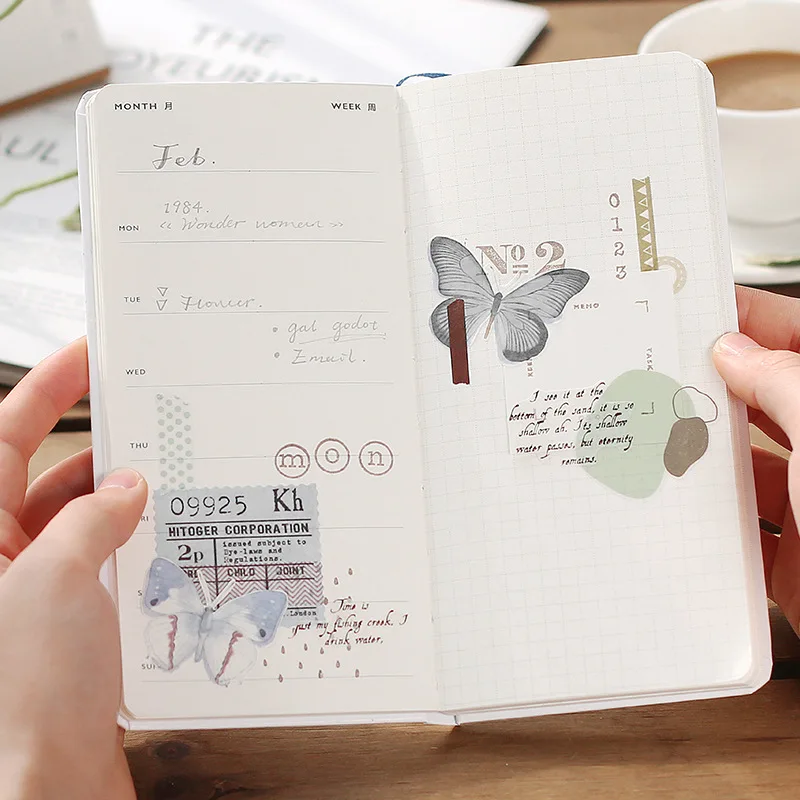 THE
VOYEURISM
MONTH 月 WEEK 周
Feb.
1984.
MON << Wonder women >>
TUE
• gal godot
WED • Email.
THU
mon
09925 Kh
HITOGER CORPORATION
2p issued subject to
Bye-laws and
Regulations.
CHILD JOINT
London
Time is
just my fishing creek. I
drink water,
SU
0
1
2
3
No 2
MEMO
TASK
I see it at the
bottom of the sand, it is so
shallow ah. Its shallow
water passes, but eternity
remains.